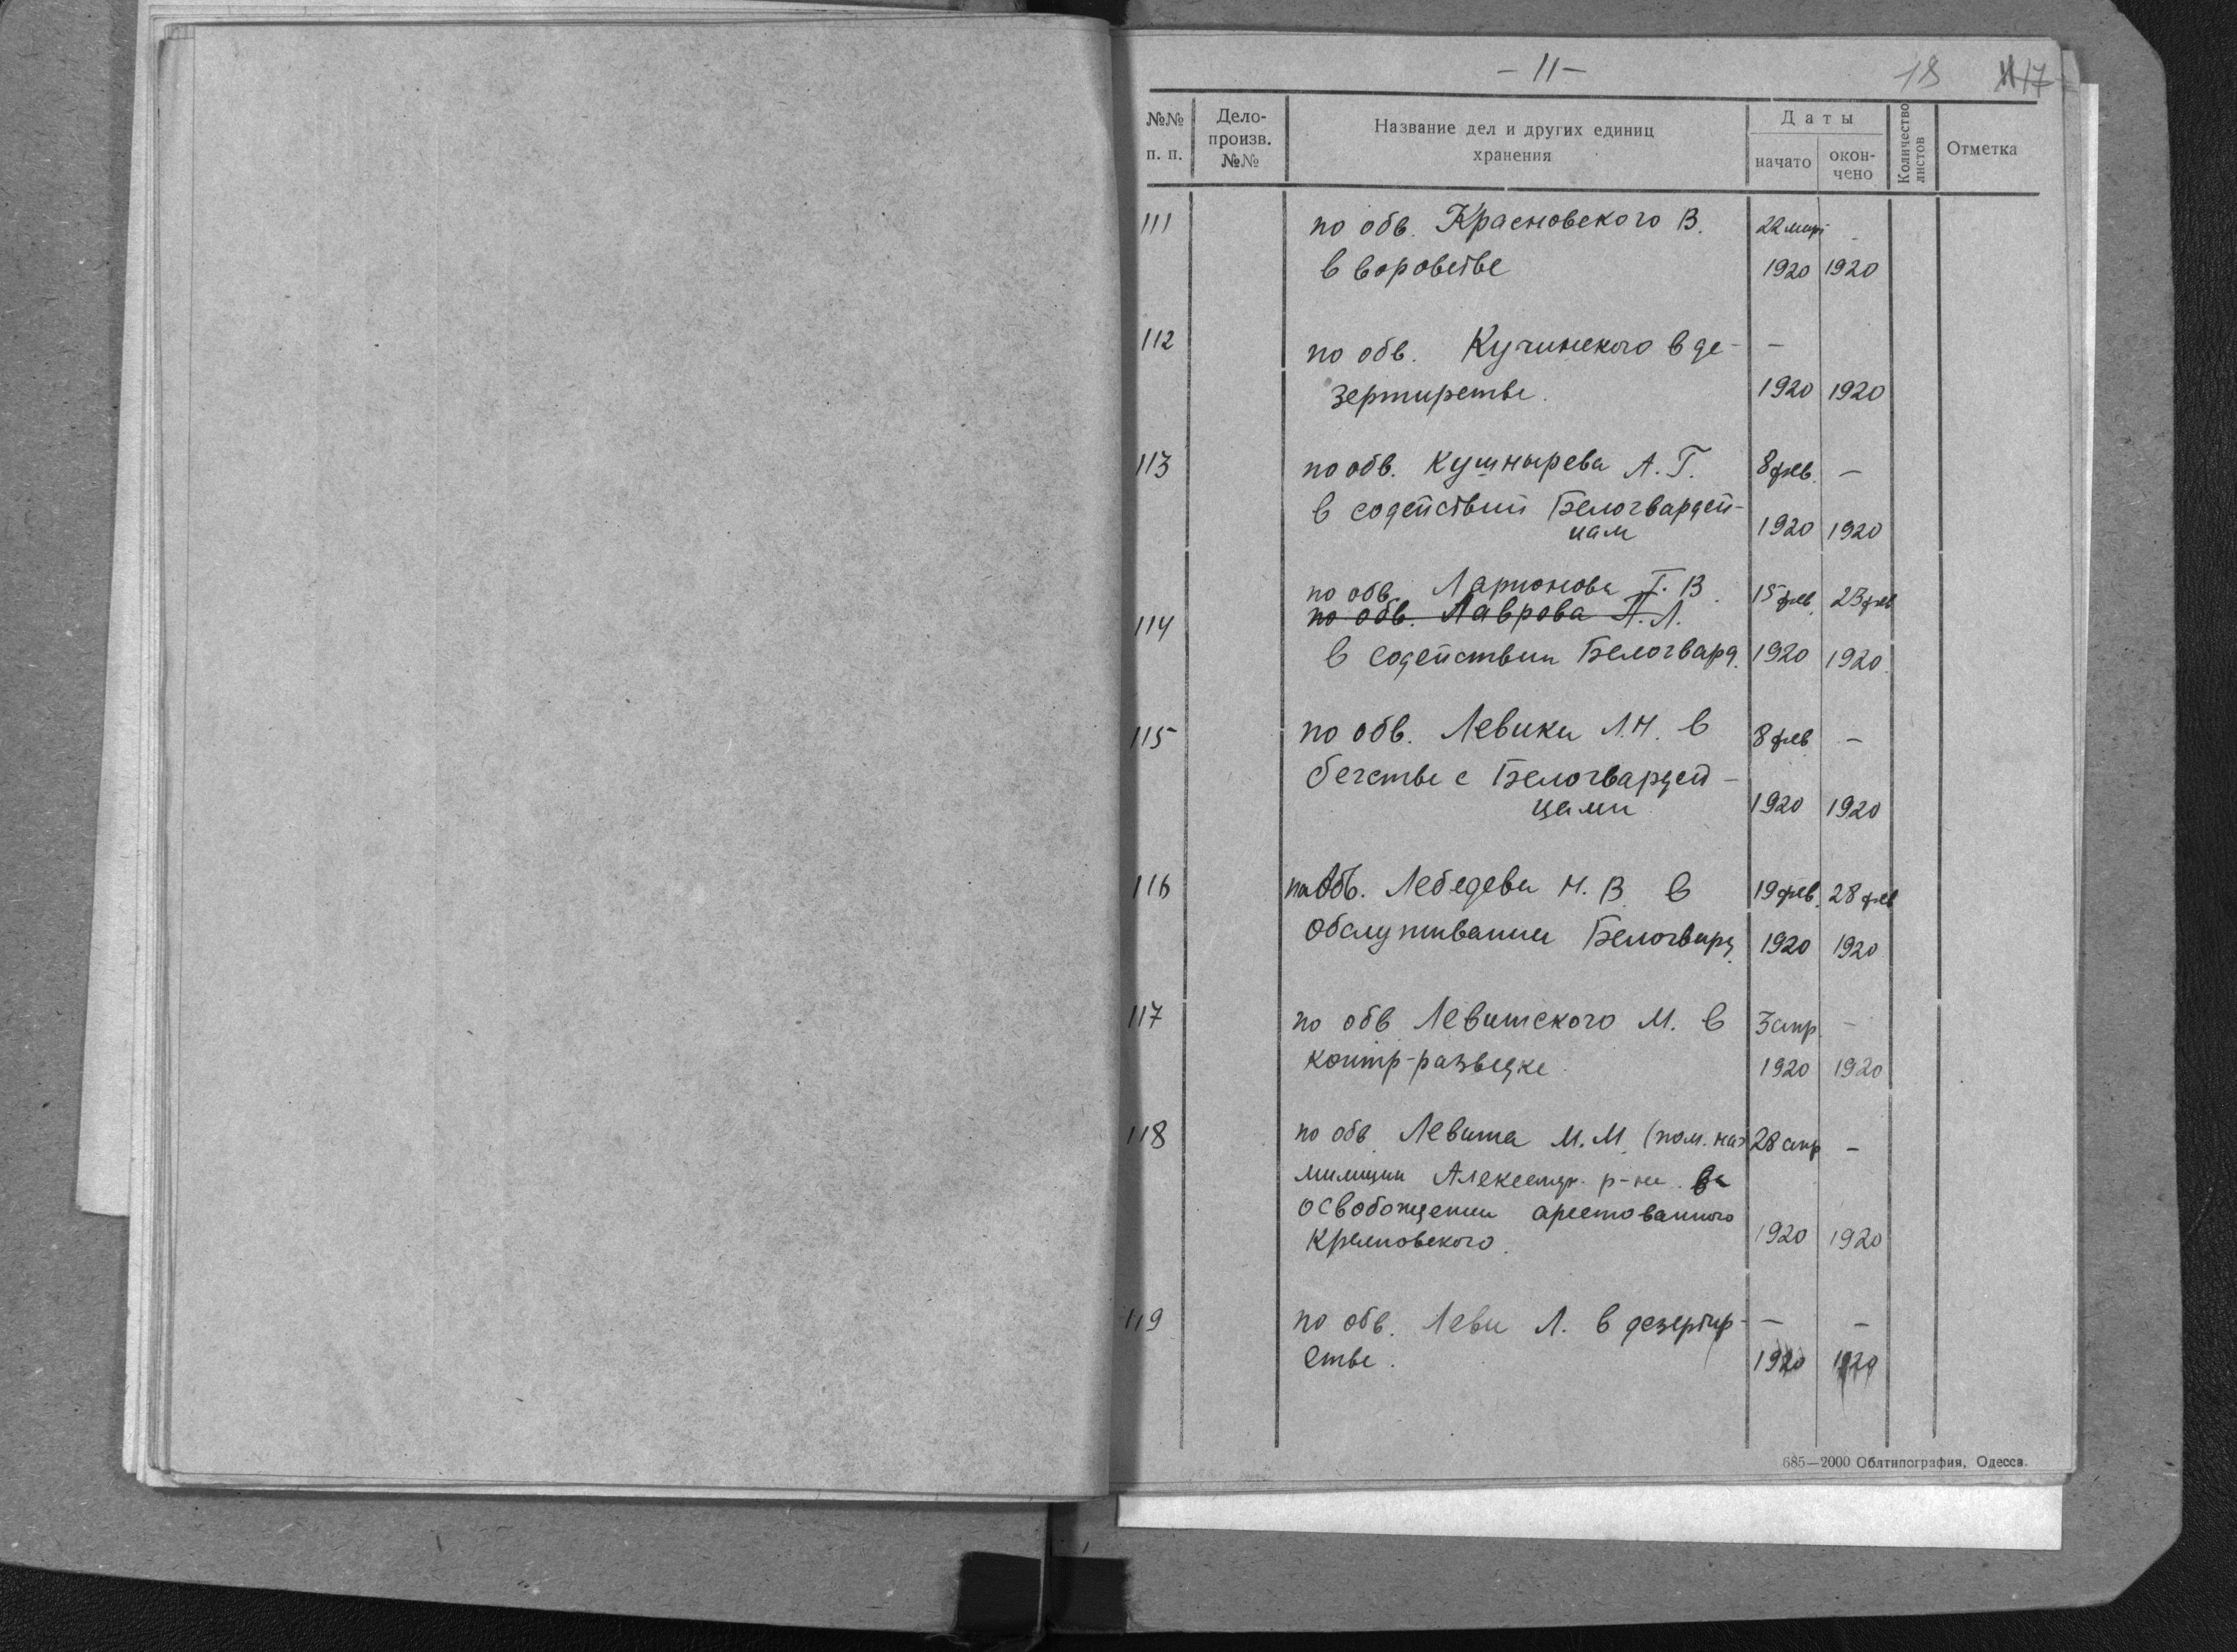 - 11 -
18 17
№№ п. п.
Дело-произв. №№
Название дел и других единиц хранения
Даты
начато
окончено
Количество листов
Отметка
111 по обв. Красновского В. 22 мар -
в воровстве 1920 1920
112 по обв. Кучинского в де- -
зертирстве. 1920 1920
113 по обв. Кушнырева А. Г. 8 фев. -
в содействии Белогвардей-
цам 1920 1920
по обв. Ларионова Г. В. 15 фев. 23 фев
114 по обв. Лаврова А. Л.
в содействии Белогвард. 1920 1920.
115 по обв. Левики Л. Н. в 8 фев -
бегстве с Белогвардей-
цами 1920 1920
116 по обв. Лебедева Н. В. в 19 фев. 28 фев
Обслуживании Белогвард. 1920 1920
117 по обв Левитского М. в 3 апр. -
контр-разведке 1920 1920
118 по обв. Левита М. М. (пом. нач 28 апр -
милиции Александр. р-на
освобождении арестованного
Кремповского. 1920 1920
119 по обв. Леви Л. в дезертир- - -
стве. 1920 1920
685—2000 Облтипография, Одесса.